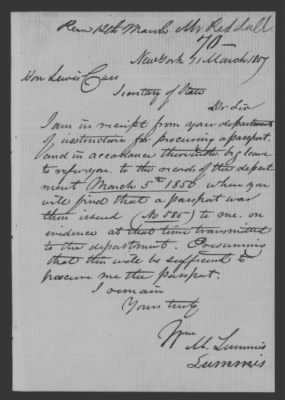 Recd 12th March Mr Reddall
70
New York 11 March, 1857
Hon Lewis Cass
Secretary of State
Dr Sir
I am in receipt from your department
of instructions for procuring a passport.
and in accordance therewith beg leave
to refer you to the records of the depart
ment March 5th 1856 when you
will find that a passport was
then issued (No 585) to me, on
evidence at that time transmitted
to the department. Presuming
that this will be sufficient to
procure me the passport.
I remain
Yours truly
Wm
M. Lummis
Lummis